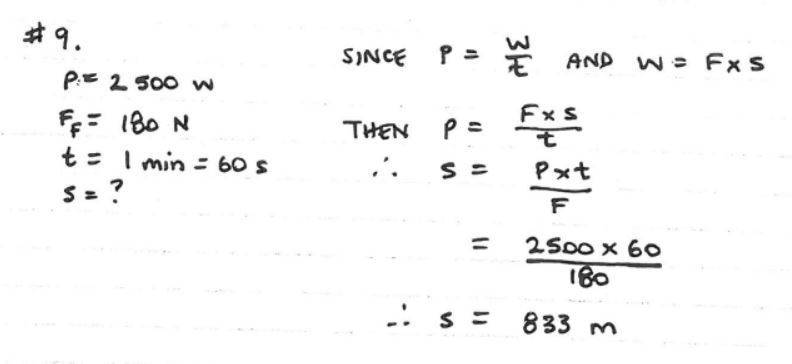 #9.
P = 2 500 W
F_F = 180 N
t = 1 min = 60 s
s = ?
SINCE P = W/t AND W = F x S
THEN P = F x S / t
∴ S = P x t / F
= 2500 x 60 / 180
∴ S = 833 m